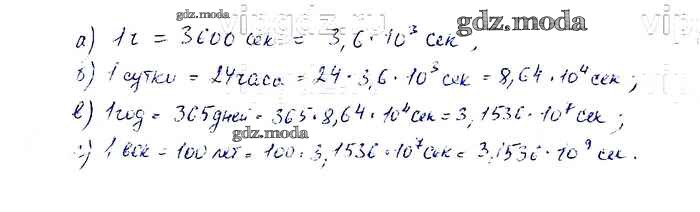 vipgdz.ru gdz.moda vip
а) 1 г = 3600 сек = 3,6 · 10³ сек ,
б) 1 сутки = 24 часа = 24 · 3,6 · 10³ сек = 8,64 · 10⁴ сек ;
gdz.moda
в) 1 год = 365 дней = 365 · 8,64 · 10⁴ сек = 3,1536 · 10⁷ сек ;
gdz.moda
г) 1 век = 100 лет = 100 · 3,1536 · 10⁷ сек = 3,1536 · 10⁹ сек .